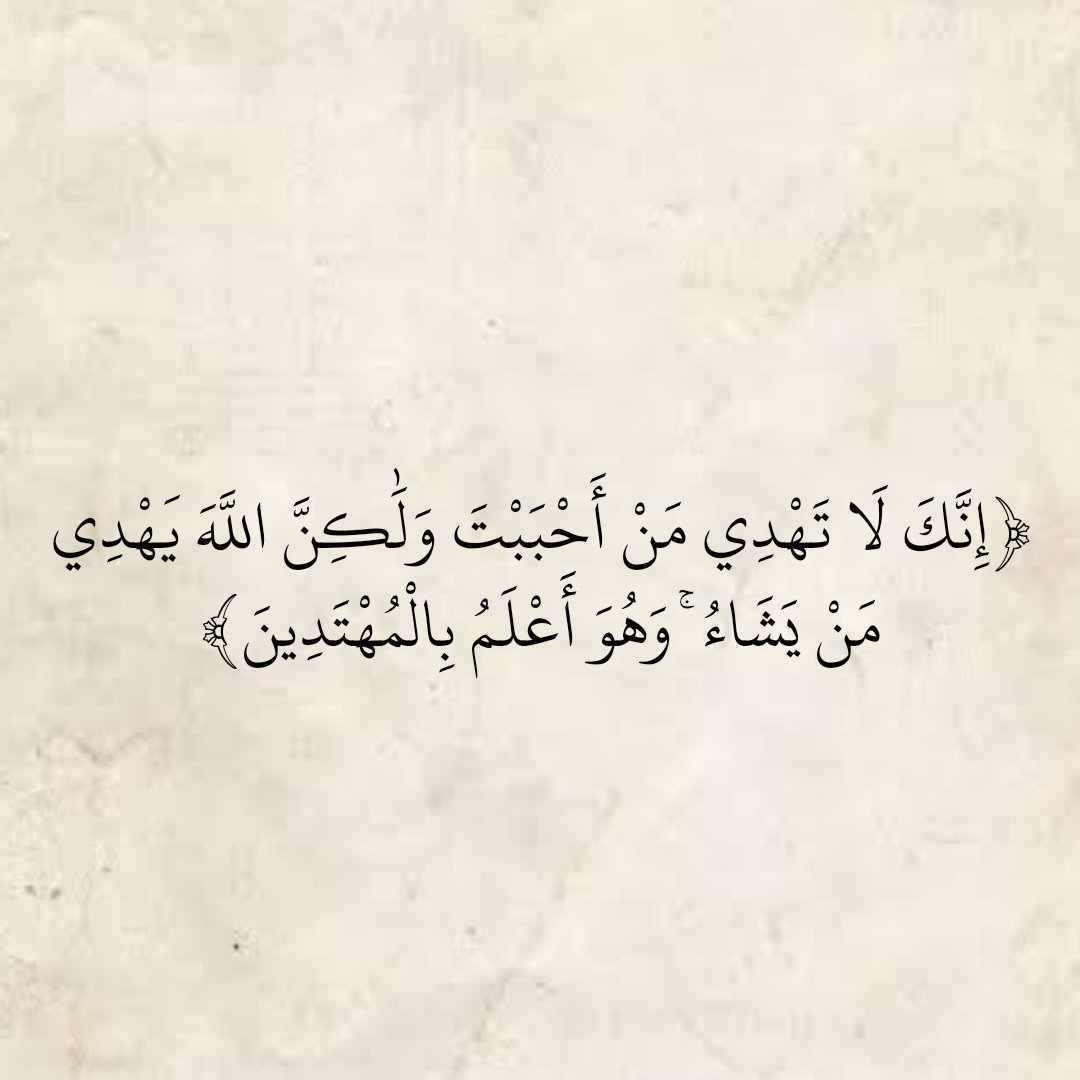 ﴿إِنَّكَ لَا تَهْدِي مَنْ أَحْبَبْتَ وَلَٰكِنَّ اللَّهَ يَهْدِي
مَنْ يَشَاءُ ۚ وَهُوَ أَعْلَمُ بِالْمُهْتَدِينَ﴾